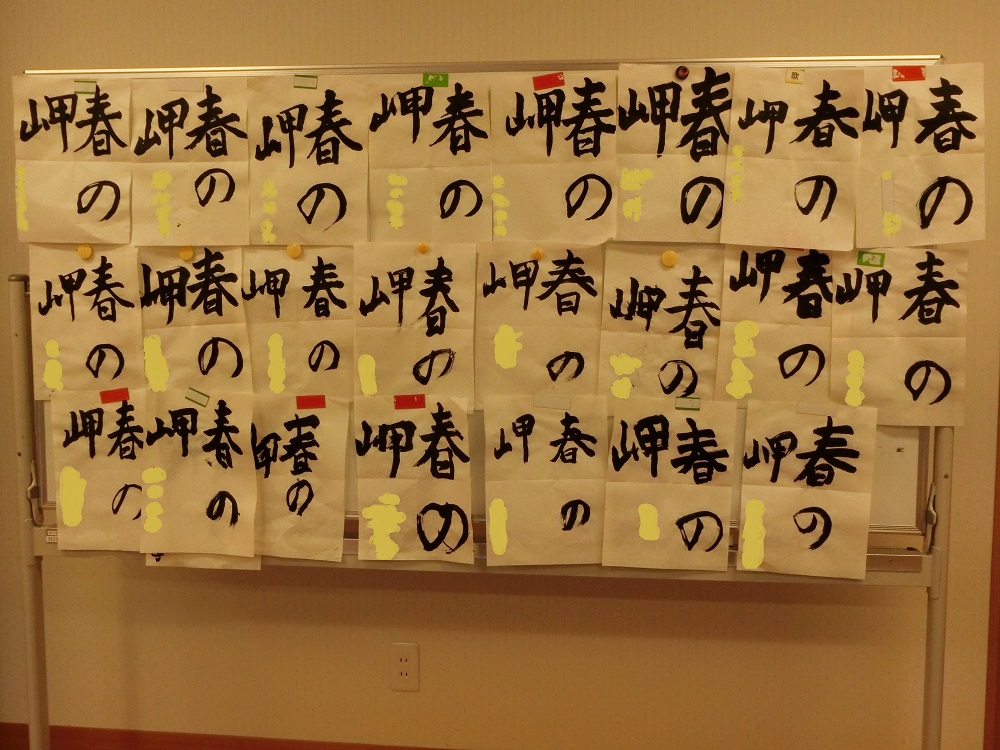 春の
岬
春の
岬
春の
岬
春の
岬
春の
岬
春の
岬
歌
春の
岬
春の
岬
春の
岬
春の
岬
春の
岬
春の
岬
春の
岬
春の
岬
春の
岬
春の
岬
春の
岬
春の
岬
春の
岬
春の
岬
春の
岬
春の
岬
春の
岬